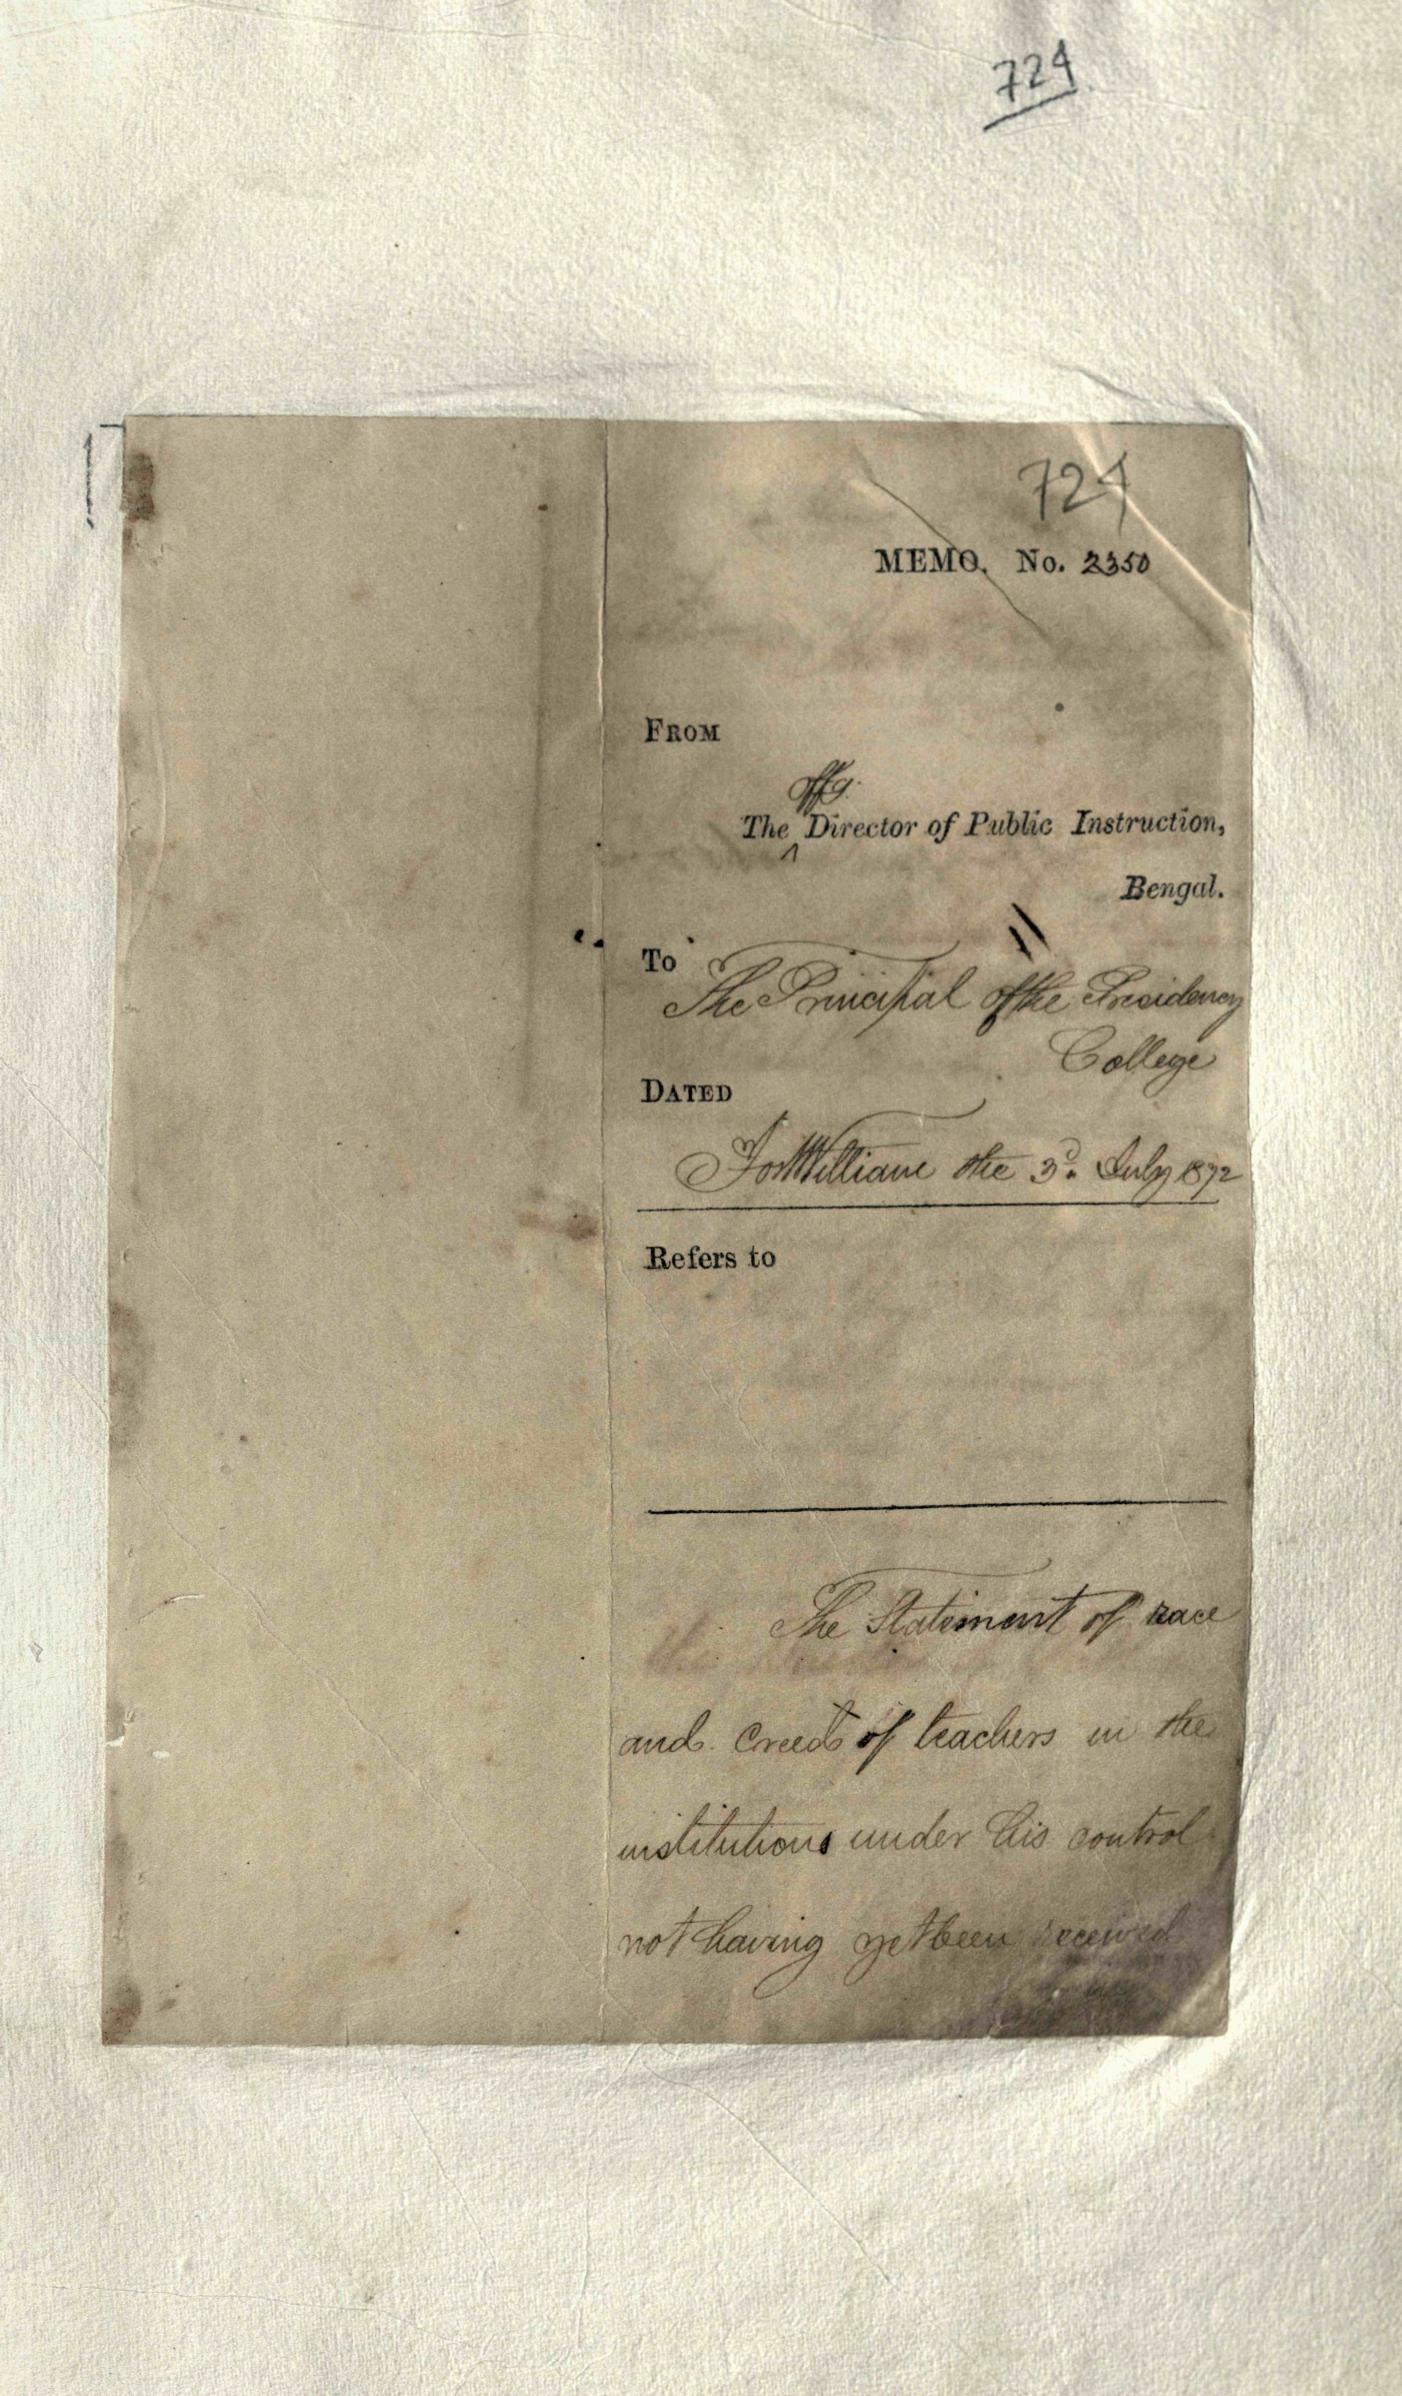 724
724
MEMO. No. 2350
FROM
offg.
The ^ Director of Public Instruction,
Bengal.
To
The Principal of the Presidency
College
DATED
Fort William the 3d. July 1872
Refers to
The Statement of race
and creed of teachers in the
institutions under his control
not having yet been received